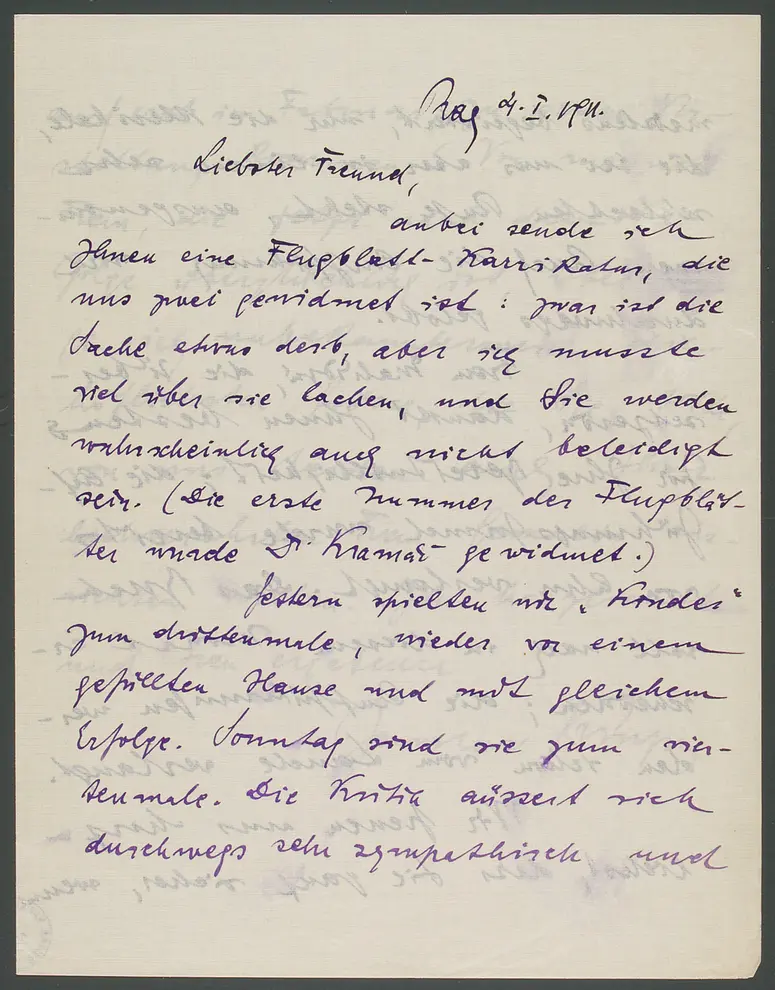 Prag 4. I. 1911.
Liebster Freund,
anbei sende ich
Ihnen eine Flugblatt-Karrikatur, die
uns zwei gewidmet ist: zwar ist die
Sache etwas derb, aber ich musste
viel über sie lachen, und Sie werden
wahrscheinlich auch nicht beleidigt
sein. (Die erste Nummer der Flugblät-
ter wurde Dr Kramář gewidmet.)
Gestern spielten wir „Kinder"
zum drittenmale, wieder vor einem
gefüllten Hause und mit gleichem
Erfolge. Sonntag sind sie zum vier-
tenmale. Die Kritik äussert sich
durchwegs sehr sympathisch und